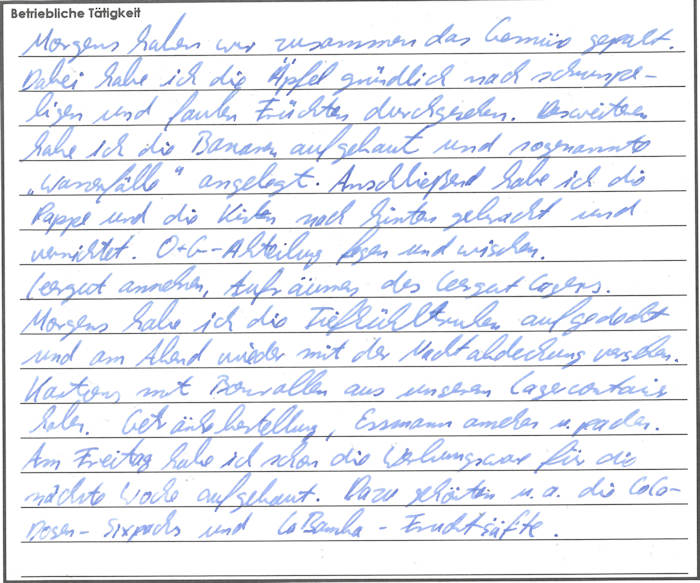 Betriebliche Tätigkeit
Morgens haben wir zusammen das Gemüse gepackt.
Dabei habe ich die Äpfel gründlich nach schrumpe-
ligen und faulen Früchten durchgesehen. Desweiteren
habe ich die Bananen aufgebaut und sogenannte
„Warenfälle“ angelegt. Anschließend habe ich die
Pappe und die Kisten nach hinten gebracht und
vernichtet. O+G-Abteilung fegen und wischen.
Leergut annehmen, Aufräumen des Leergutlagers.
Morgens habe ich die Tiefkühltruhen aufgedeckt
und am Abend wieder mit der Nachtabdeckung versehen.
Kartons mit Bonrollen aus unserem Lagercontainer
holen. Getränkebestellung, Essmann u. packen.
Am Freitag habe ich schon die Werbungsware für die
nächste Woche aufgebaut. Dazu gehörten u.a. die Cola-
Dosen-Sixpacks und LaBamba-Fruchtsäfte.